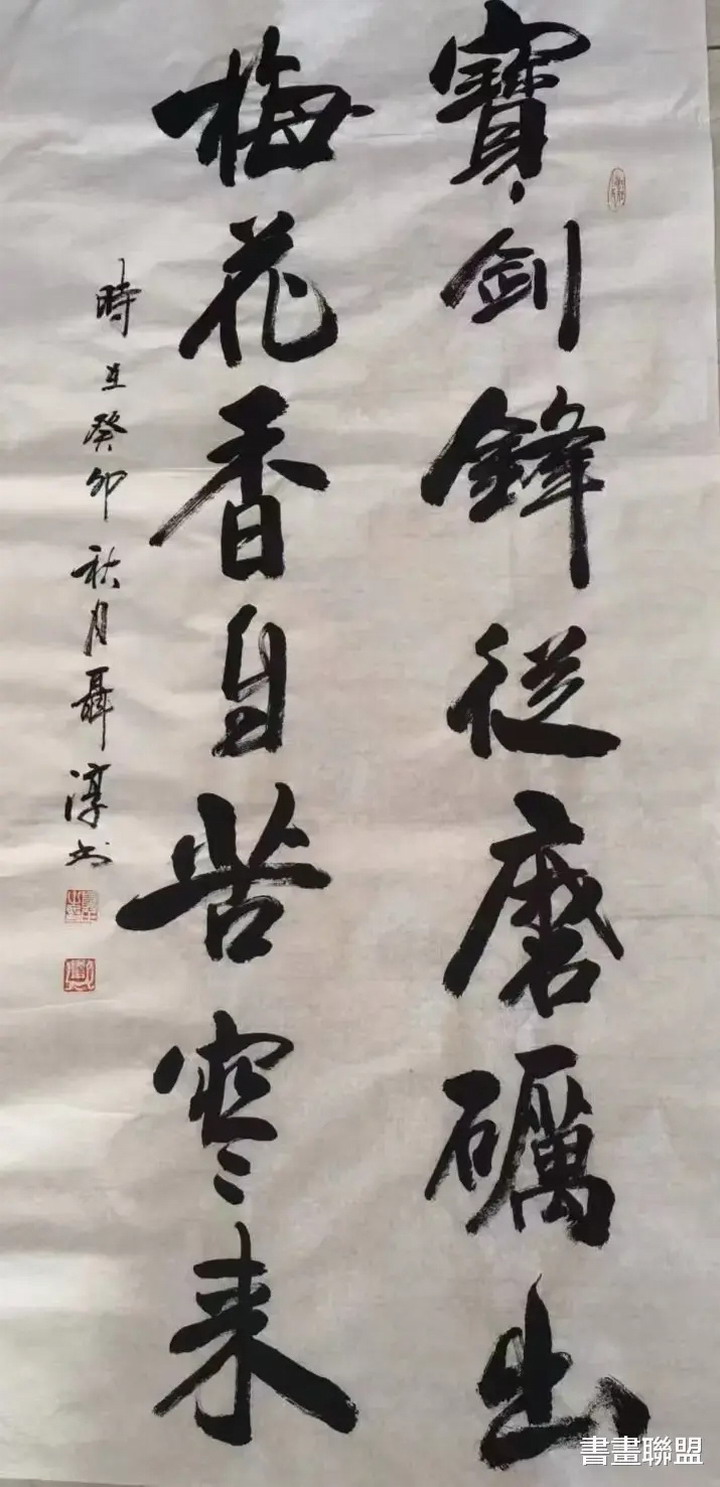 寶劍鋒從磨礪出
梅花香自苦寒来
時在癸卯秋月聶淳书
書畫聯盟